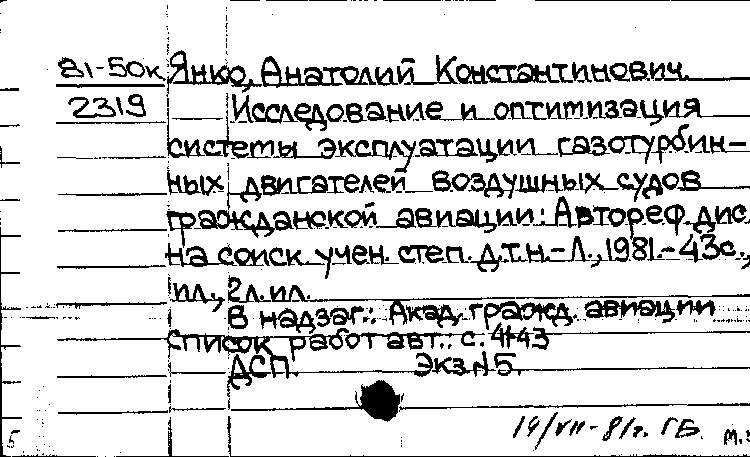 81-50к Янко, Анатолий Константинович.
2319 Исследование и оптитизация
системы эксплуатации газотурбин-
ных двигателей воздушных судов
гражданской авиации: Автореф. дис.
на соиск. учен. степ. д.т.н.-Л., 1981.-43с.,
ил., 2л.ил.
В надзаг.: Акад. гражд. авиации
Список работ авт.: с. 41-43
ДСП. Экз.№5.
14/VII-81г. ГБ. М.
5